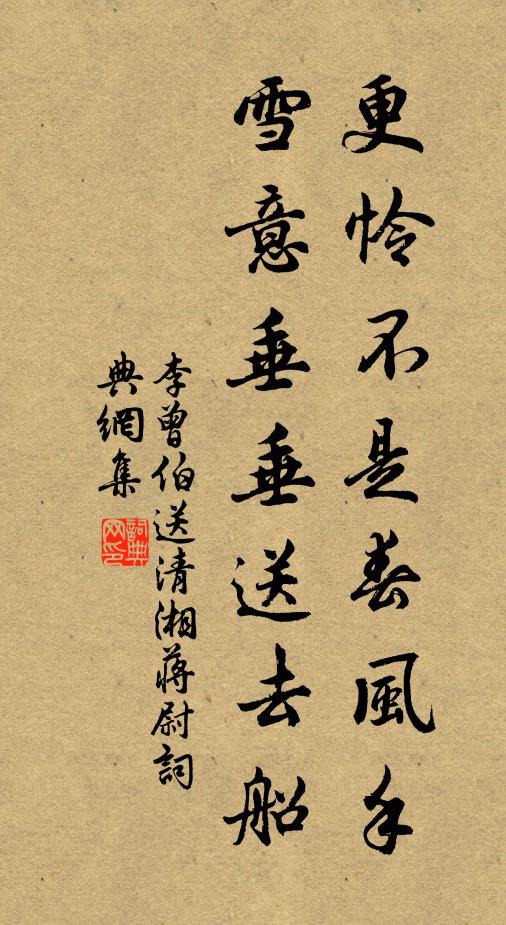 更怜不是春風手
雪意垂垂送去船
李曾伯送清湘蔣尉詞
典網集
詞典
网印